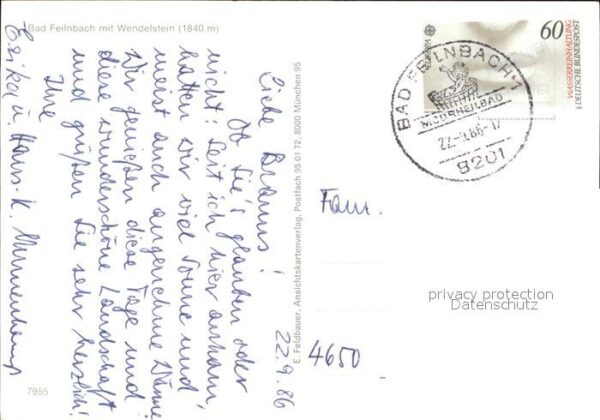 Bad Feilnbach mit Wendelstein (1840 m)
22.9.86
Liebe Brauns!
Ob Sie's glauben oder
nicht: Seit ich hier ankam,
hatten wir viel Sonne und
meist auch angenehme Wärme
Wir genießen diese Tage und
diese wunderschöne Landschaft
und grüßen Sie sehr herzlich!
Ihre
Erika u. Hans-K.
7955
E. Feldbauer, Ansichtskartenverlag, Postfach 95 01 72, 8000 München 95
60
EUROPA
WASSERREINHALTUNG
DEUTSCHE BUNDESPOST
BAD FEILNBACH 1
MOORHEILBAD
22.-9.86-17
8201
Fam.
4650
privacy protection
Datenschutz